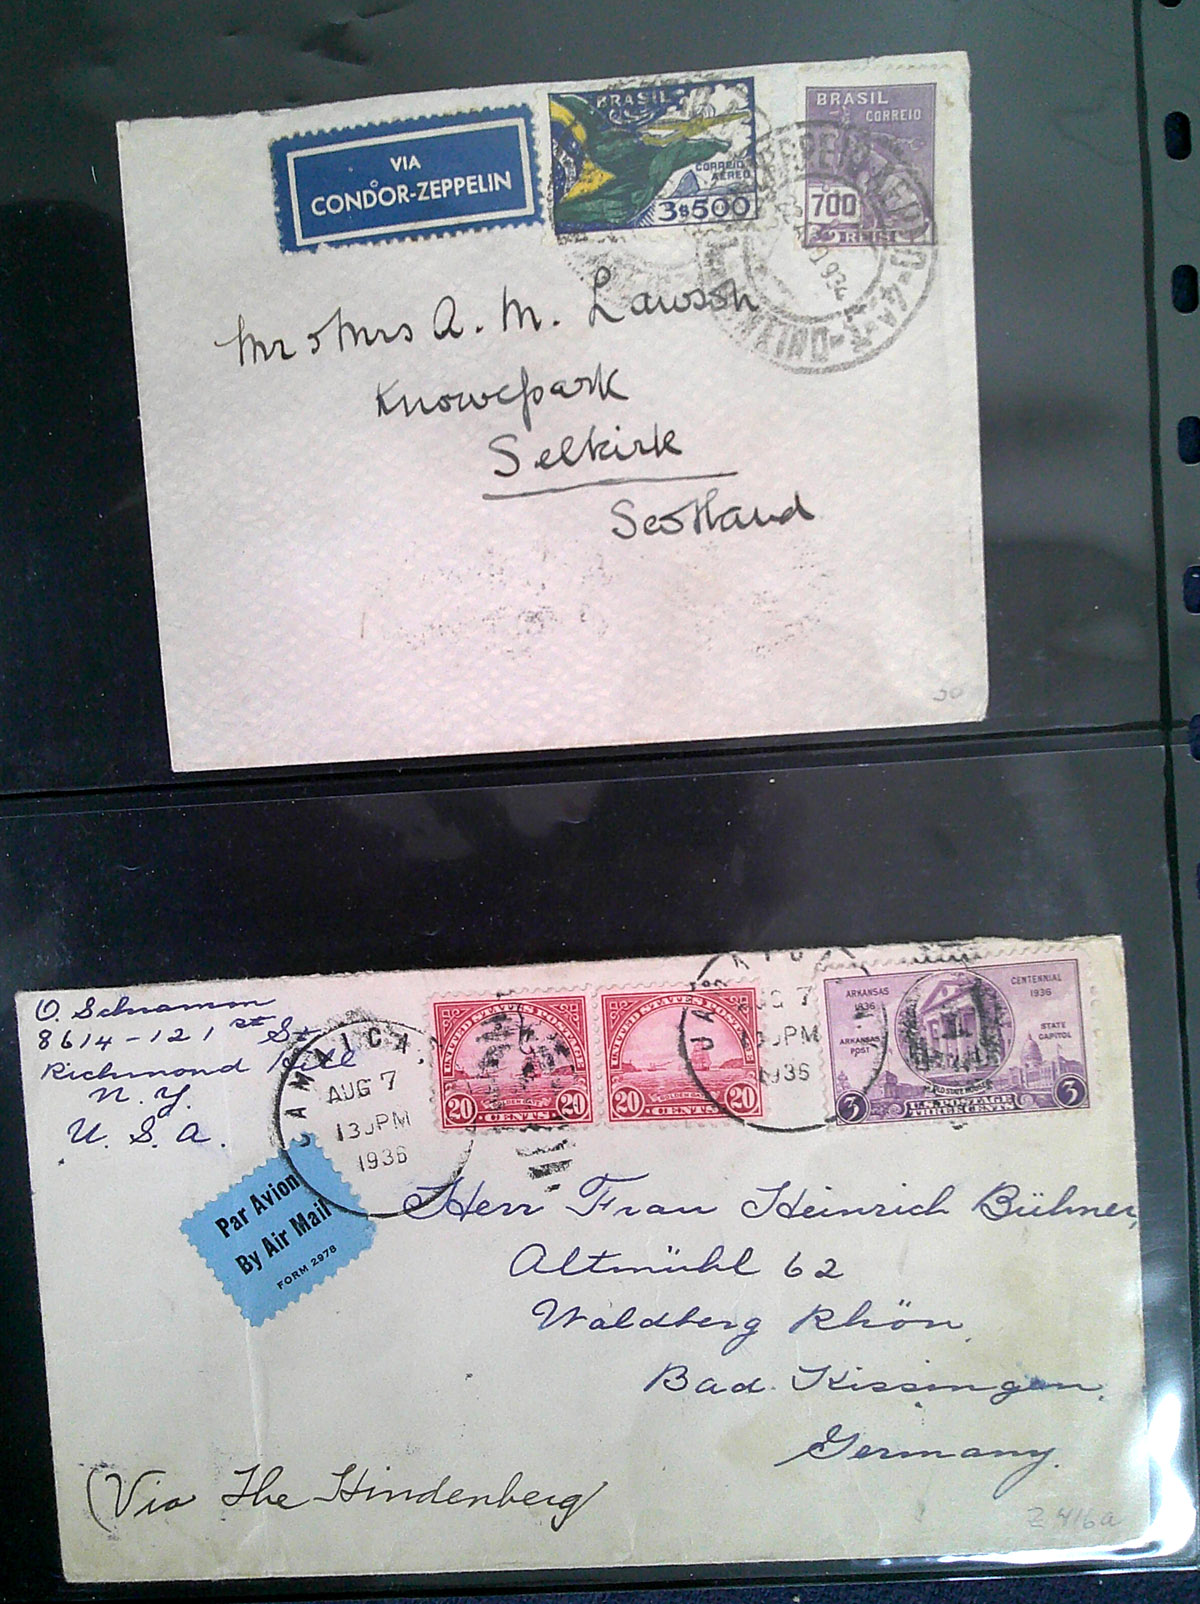 VIA
CONDOR-ZEPPELIN
BRASIL
CORREIO
AEREO
3$500
BRASIL
CORREIO
700
REIS
Mr & Mrs A. M. Lawson
Knowepark
Selkirk
Scotland
50
O. Schramm
8614-121st St
Richmond Hill
N. Y.
U. S. A.
JAMAICA,
AUG 7
130PM
1936
UNITED STATES POSTAGE
20 20
GOLDEN GATE
CENTS
UNITED STATES POSTAGE
20 20
GOLDEN GATE
CENTS
7
30PM
1936
ARKANSAS
1836
CENTENNIAL
1936
ARKANSAS
POST
STATE
CAPITOL
OLD STATE HOUSE
3 U.S. POSTAGE 3
THREE CENTS
Par Avion
By Air Mail
FORM 2978
Herr Frau Heinrich Bühner,
Altmühl 62
Waldberg Rhön
Bad. Kissingen.
Germany.
(Via The Hindenberg)
Z 416a